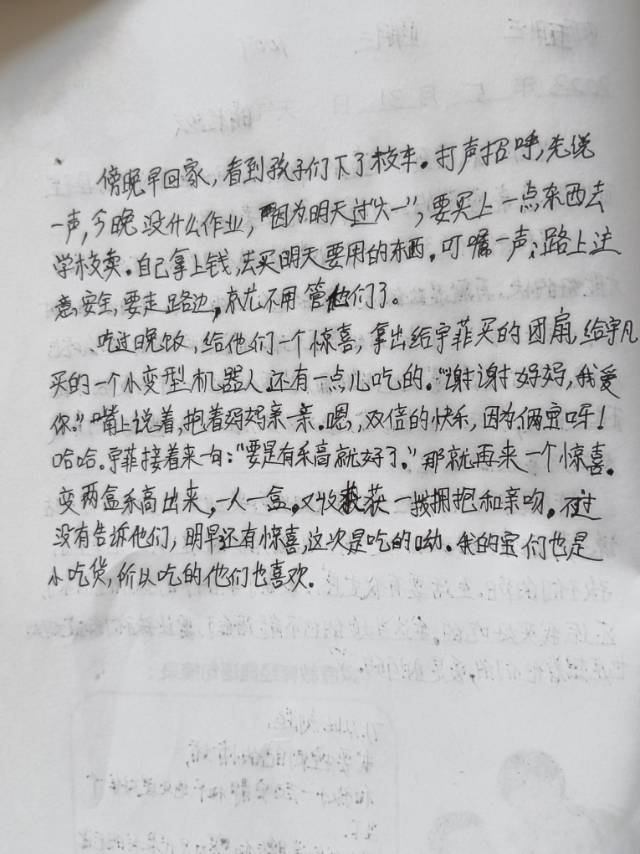 傍晚早回家，看到孩子们下了校车。打声招呼，先说
一声，今晚没什么作业，因为明天过“六一”，要买上一点东西去
学校卖。自己拿上钱，去买明天要用的东西。叮嘱一声；路上注
意安全，要走路边，就不用管他们了。
吃过晚饭，给他们一个惊喜，拿出给宇菲买的团扇，给宇凡
买的一个小变型机器人还有一点儿吃的。“谢谢妈妈，我爱
你。”嘴上说着，抱着妈妈亲一亲。嗯，双倍的快乐，因为俩宝呀！
哈哈。宇菲接着来一句：“要是有禾高就好了。”那就再来一个惊喜。
变两盒禾高出来，一人一盒。又收获一拨拥抱和亲吻。不过
没有告诉他们，明早还有惊喜，这次是吃的呦。我的宝们也是
小吃货，所以吃的他们也喜欢。